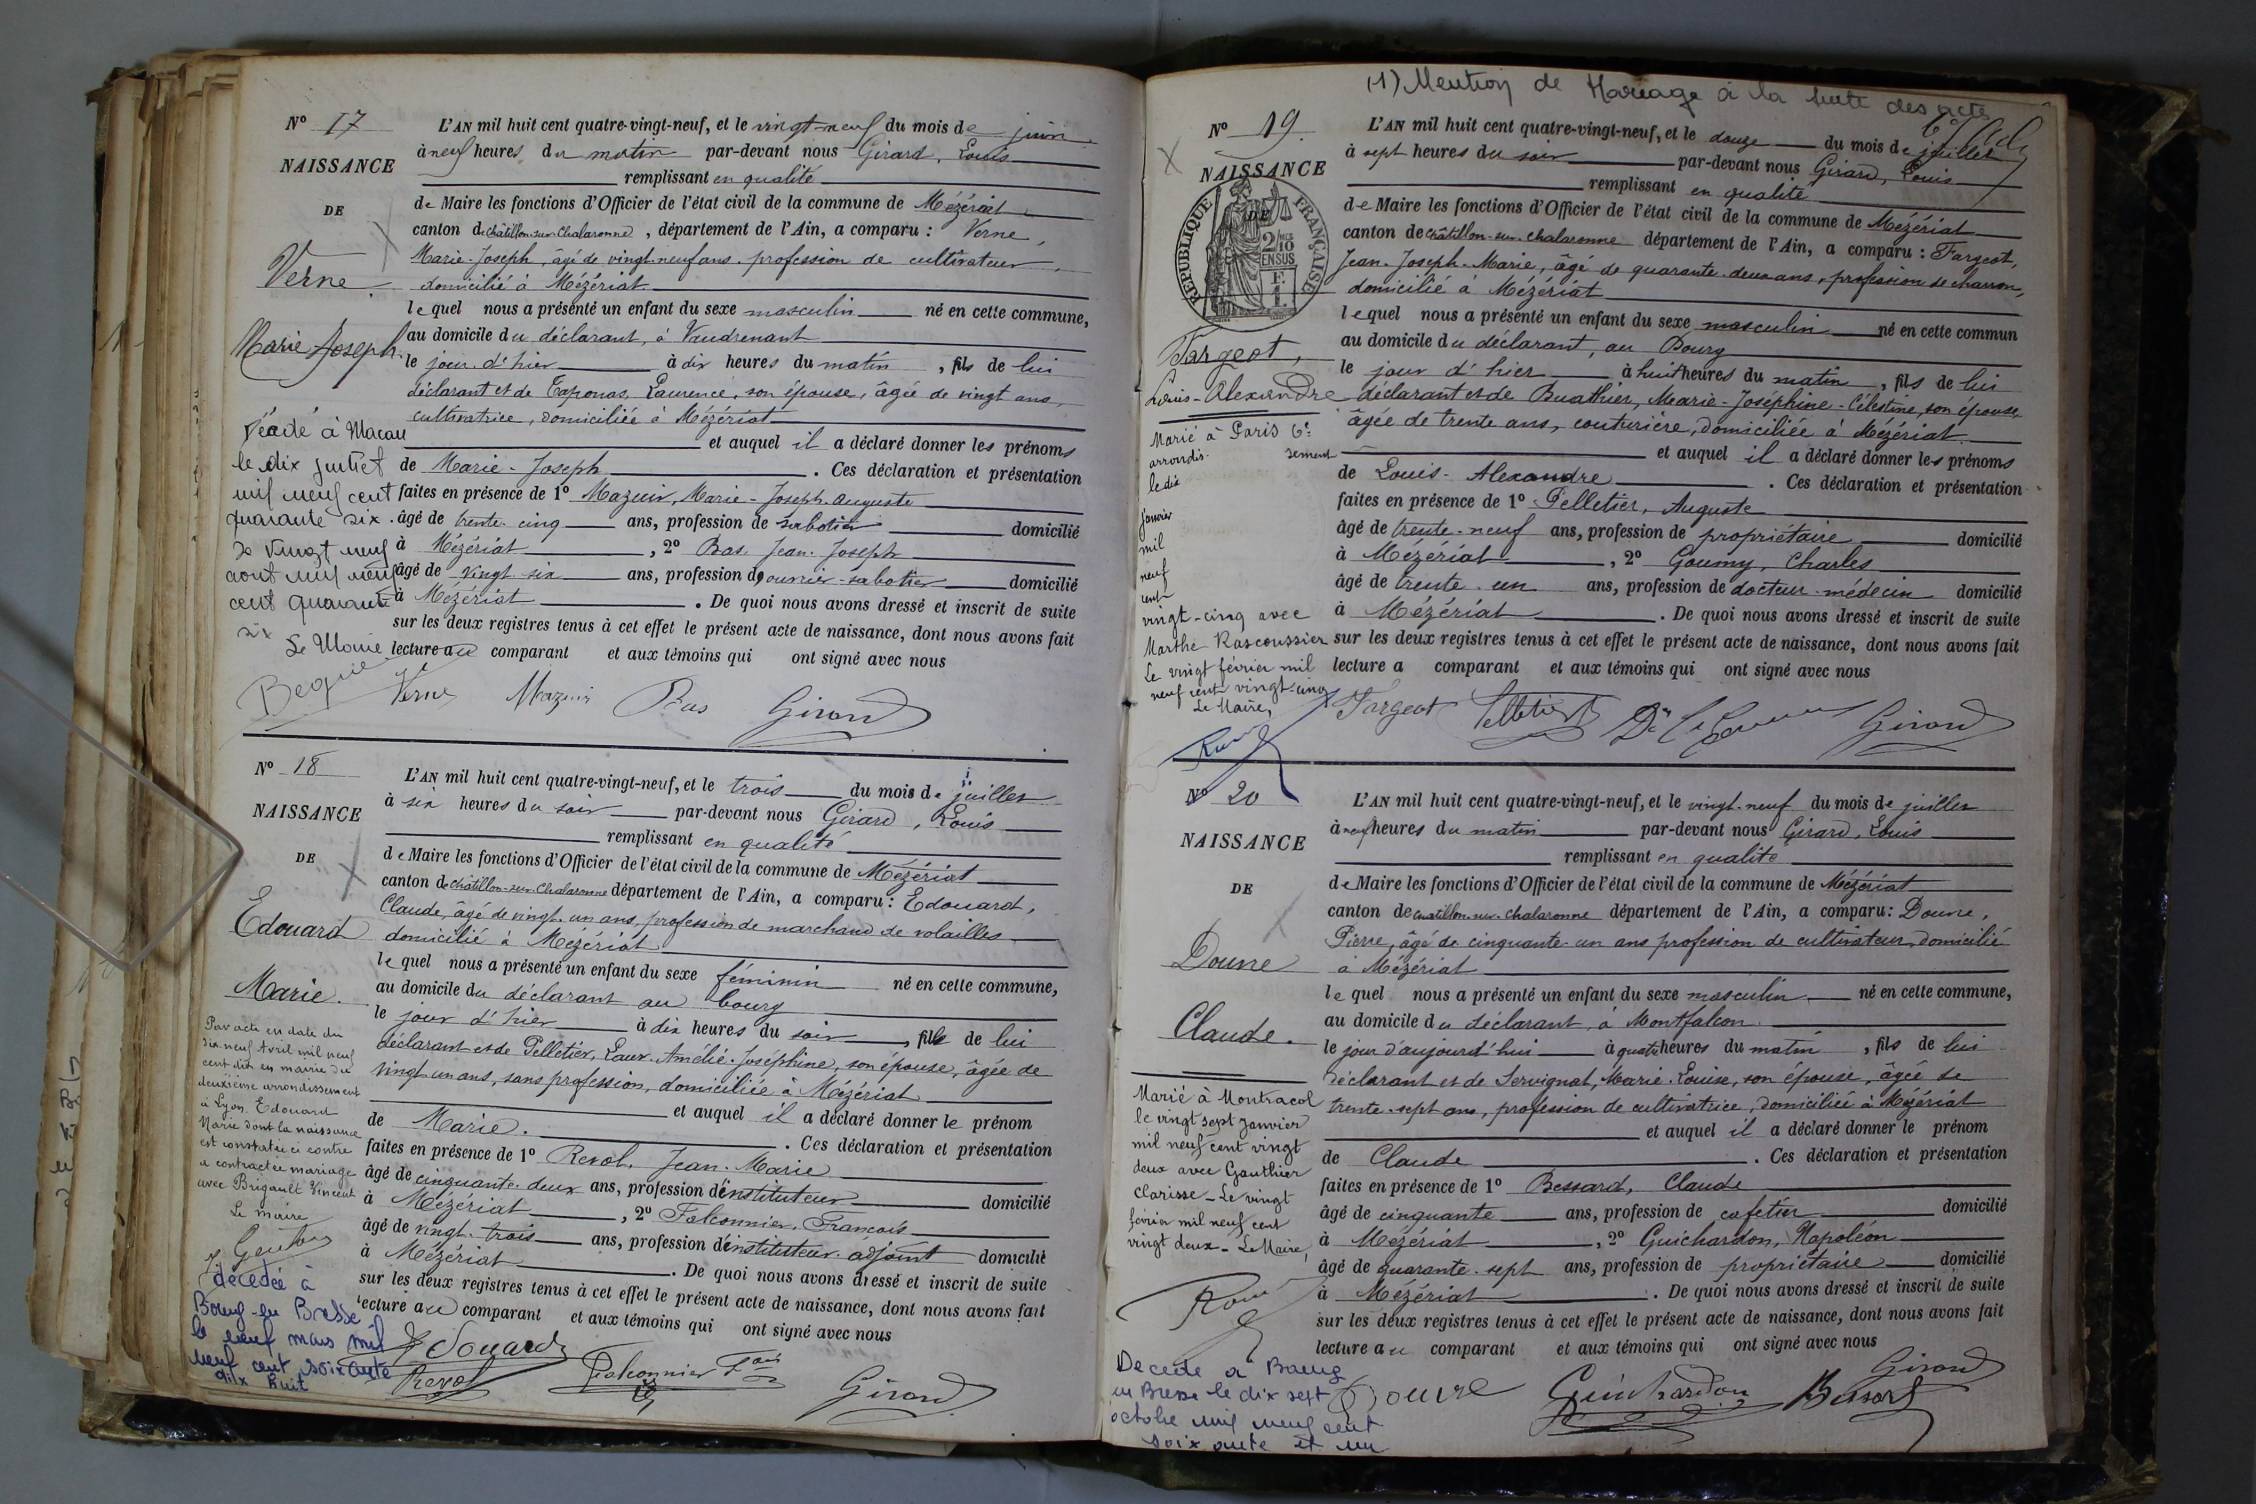 N° 17
NAISSANCE
DE
Verne
Marie-Joseph.
L'AN mil huit cent quatre-vingt-neuf, et le vingt-neuf du mois de juin
à neuf heures du matin par-devant nous Girard, Louis
remplissant en qualité
de Maire les fonctions d'Officier de l'état civil de la commune de Mézériat
canton de Châtillon-sur-Chalaronne, département de l'Ain, a comparu : Verne,
Marie-Joseph, âgé de vingt-neuf ans, profession de cultivateur,
domicilié à Mézériat
lequel nous a présenté un enfant du sexe masculin né en cette commune,
au domicile du déclarant, à Vaudrenant
le jour d'hier à dix heures du matin, fils de lui
déclarant et de Laurence, son épouse, âgée de vingt ans,
cultivatrice, domiciliée à Mézériat
et auquel il a déclaré donner les prénoms
de Marie-Joseph. Ces déclaration et présentation
faites en présence de 1° Mazuir, Marie-Joseph-Auguste
âgé de trente-cinq ans, profession de sabotier domicilié
à Mézériat, 2° Bas, Jean-Joseph
âgé de vingt-six ans, profession d'ouvrier-sabotier domicilié
à Mézériat. De quoi nous avons dressé et inscrit de suite
sur les deux registres tenus à cet effet le présent acte de naissance, dont nous avons fait
lecture au comparant et aux témoins qui ont signé avec nous
à Macau
le dix juillet
mil neuf cent
quarante six.
Le vingt neuf
aout mil neuf
cent quarante
six
Le Maire
Verne Mazuir Bas Girard
N° 18
NAISSANCE
DE
Edouard
Marie.
L'AN mil huit cent quatre-vingt-neuf, et le trois du mois de juillet
à six heures du soir par-devant nous Girard, Louis
remplissant en qualité
de Maire les fonctions d'Officier de l'état civil de la commune de Mézériat
canton de Châtillon-sur-Chalaronne département de l'Ain, a comparu : Edouard,
Claude, âgé de vingt-un ans, profession de marchand de volailles
domicilié à Mézériat
lequel nous a présenté un enfant du sexe féminin né en cette commune,
au domicile du déclarant au bourg
le jour d'hier à dix heures du soir, fille de lui
déclarant et de Pelletier, Laure-Amélie-Joséphine, son épouse, âgée de
vingt-un ans, sans profession, domiciliée à Mézériat
et auquel il a déclaré donner le prénom
de Marie. Ces déclaration et présentation
faites en présence de 1° Revol, Jean-Marie
âgé de cinquante-deux ans, profession d'instituteur domicilié
à Mézériat, 2° Falconnier, François
âgé de vingt-trois ans, profession d'instituteur-adjoint domicilié
à Mézériat. De quoi nous avons dressé et inscrit de suite
sur les deux registres tenus à cet effet le présent acte de naissance, dont nous avons fait
lecture au comparant et aux témoins qui ont signé avec nous
Par acte en date du
dix neuf Avril mil neuf
cent dix en mairie du
deuxième arrondissement
à Lyon Edouard
Marie dont la naissance
est constatée ci contre
a contractée mariage
avec Brigault Vincent
Le maire
décédée à
Bourg-en Bresse
le neuf mars mil
neuf cent soixante
dix huit
Edouard
Revol Falconnier Fois Girard
(1) Mention de Mariage à la suite des actes
N° 19
NAISSANCE
DE
RÉPUBLIQUE FRANÇAISE
2/10
EN SUS
Fargeot,
Louis-Alexandre
L'AN mil huit cent quatre-vingt-neuf, et le douze du mois de juillet
à sept heures du soir par-devant nous Girard, Louis
remplissant en qualité
de Maire les fonctions d'Officier de l'état civil de la commune de Mézériat
canton de Châtillon-sur-Chalaronne département de l'Ain, a comparu : Fargeot,
Jean-Joseph-Marie, âgé de quarante-deux ans, profession de charron,
domicilié à Mézériat
lequel nous a présenté un enfant du sexe masculin né en cette commun
au domicile du déclarant, au Bourg
le jour d'hier à huit heures du matin, fils de lui
déclarant et de Buathier, Marie-Joséphine-Célestine, son épouse,
âgée de trente ans, couturière, domiciliée à Mézériat
et auquel il a déclaré donner les prénoms
de Louis-Alexandre. Ces déclaration et présentation
faites en présence de 1° Pelletier, Auguste
âgé de trente-neuf ans, profession de propriétaire domicilié
à Mézériat, 2° Goumy, Charles
âgé de trente-un ans, profession de docteur-médecin domicilié
à Mézériat. De quoi nous avons dressé et inscrit de suite
sur les deux registres tenus à cet effet le présent acte de naissance, dont nous avons fait
lecture a comparant et aux témoins qui ont signé avec nous
Marié à Paris 6e
arrondissement
le dix
janvier
mil
neuf
cent
vingt-cinq avec
Marthe Rascoussier
Le vingt février mil
neuf cent vingt-cinq
Le Maire,
Fargeot Pelletier Girard
N° 20
NAISSANCE
DE
Douvre
Claude.
L'AN mil huit cent quatre-vingt-neuf, et le vingt-neuf du mois de juillet
à neuf heures du matin par-devant nous Girard, Louis
remplissant en qualité
de Maire les fonctions d'Officier de l'état civil de la commune de Mézériat
canton de Châtillon-sur-Chalaronne département de l'Ain, a comparu : Douvre,
Pierre, âgé de cinquante-un ans profession de cultivateur, domicilié
à Mézériat
lequel nous a présenté un enfant du sexe masculin né en cette commune,
au domicile du déclarant, à Montfalcon
le jour d'aujourd'hui à quatre heures du matin, fils de lui
déclarant et de Servignat, Marie-Louise, son épouse, âgée de
trente-sept ans, profession de cultivatrice, domiciliée à Mézériat
et auquel il a déclaré donner le prénom
de Claude. Ces déclaration et présentation
faites en présence de 1° Bessard, Claude
âgé de cinquante ans, profession de cafetier domicilié
à Mézériat, 2° Guichardon, Napoléon
âgé de quarante-sept ans, profession de propriétaire domicilié
à Mézériat. De quoi nous avons dressé et inscrit de suite
sur les deux registres tenus à cet effet le présent acte de naissance, dont nous avons fait
lecture au comparant et aux témoins qui ont signé avec nous
Marié à Montracol
le vingt sept janvier
mil neuf cent vingt
deux avec Gauthier
Clarisse - Le vingt
février mil neuf cent
vingt deux - Le Maire,
Décédé à Bourg
en Bresse le dix sept
octobre mil neuf cent
soixante et un
Douvre Guichardon Bessard Girard